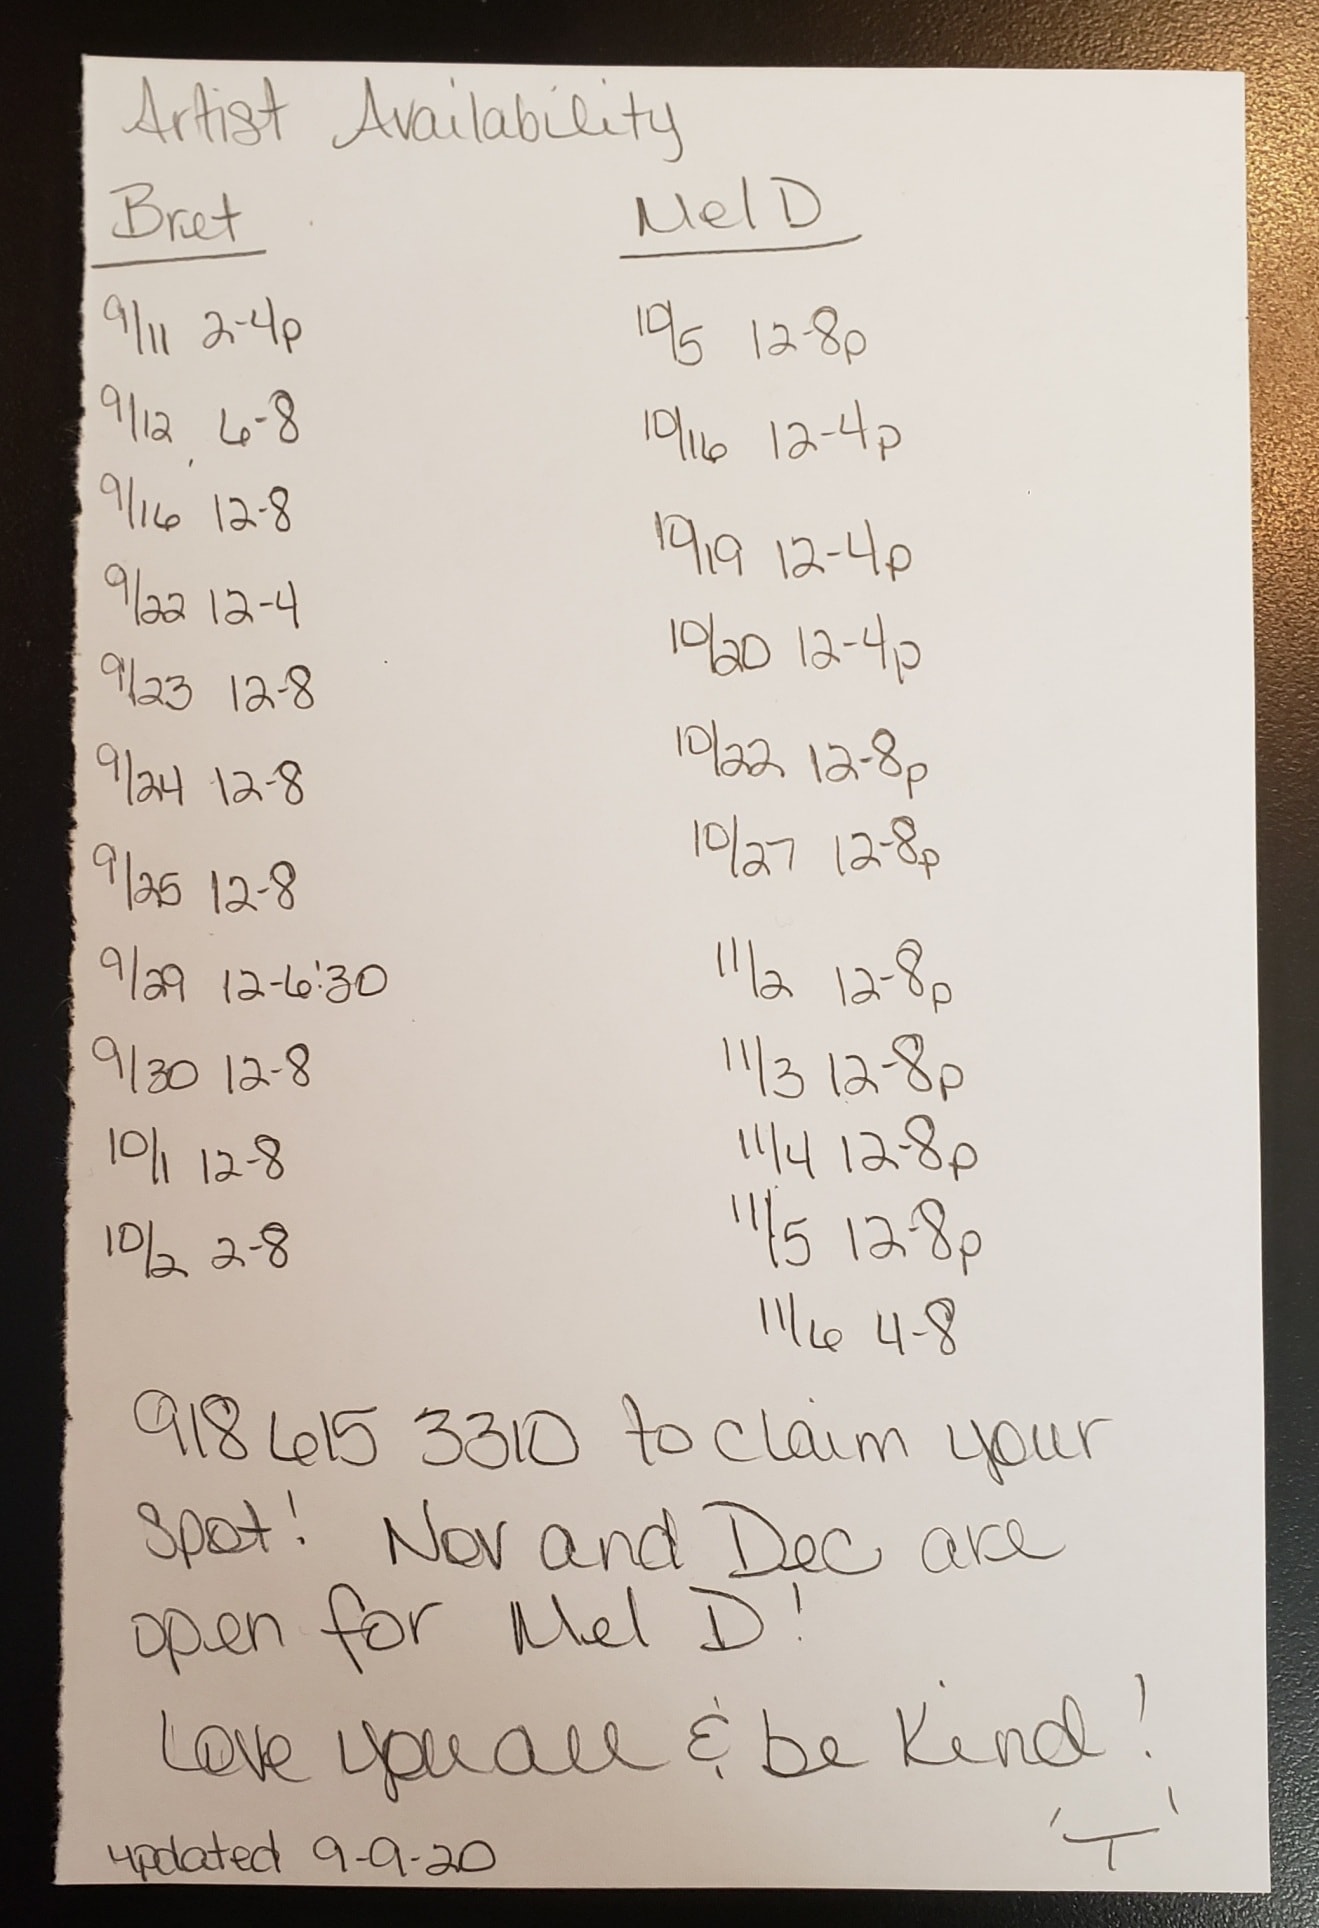 Artist Availability
Bret
9/11 2-4p
9/12 6-8
9/16 12-8
9/22 12-4
9/23 12-8
9/24 12-8
9/25 12-8
9/29 12-6:30
9/30 12-8
10/1 12-8
10/2 2-8
Mel D
10/5 12-8p
10/16 12-4p
10/19 12-4p
10/20 12-4p
10/22 12-8p
10/27 12-8p
11/2 12-8p
11/3 12-8p
11/4 12-8p
11/5 12-8p
11/6 4-8
918 615 3310 to claim your
spot! Nov and Dec are
open for Mel D!
Love you all & be kind!
'T'
updated 9-9-20